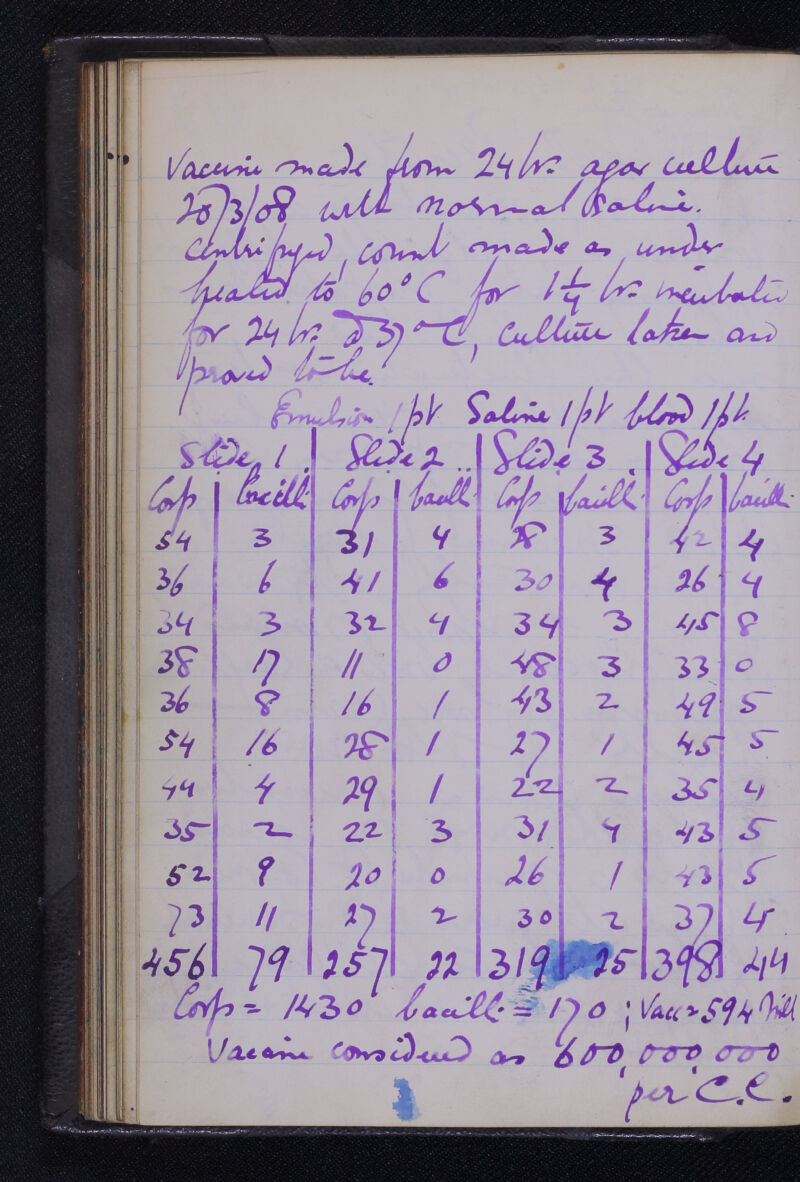 Vaccine made from 24 hr. agar culture
20/3/08 with normal saline.
Centrifuged, count made as under
heated to 60°C for 1 1/4 hr. incubated
for 24 hr. @ 37°C, culture taken and
proved to be.
Emulsion 1 pt. Saline 1 pt blood 1 pt.
Slide 1. Slide 2 .. Slide 3 . Slide 4
Corp bacilli Corp bacilli Corp bacilli Corp bacilli
54 3 31 4 28 3 42 4
36 6 41 6 30 4 26 4
34 3 32 4 34 3 45 8
38 17 11 0 48 3 33 0
36 8 16 1 43 2 49 5
54 16 28 1 27 1 45 5
44 4 29 1 22 2 35 4
35 2 22 3 31 4 43 5
52 9 20 0 26 1 43 5
73 11 27 2 30 2 37 4
456 79 257 22 319 25 398 44
Corp = 1430 bacilli = 170 ; Vacc = 594 Mill
Vaccine considered as 600,000,000
per C.C.